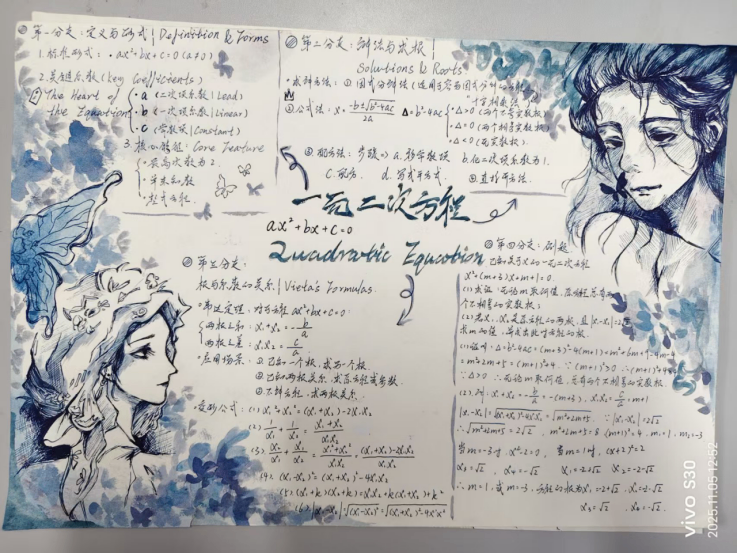 ① 第一分支：定义与形式 | Definition & Forms
1. 标准形式：· ax²+bx+c=0 (a≠0)
2. 关键系数 (Key Coefficients)
The Heart of the Equation
· a (二次项系数 | Lead)
· b (一次项系数 | Linear)
· c (常数项 | Constant)
3. 核心特征：Core Feature
· 最高次数为2.
· 整式方程
② 第二分支：解法与求根
Solutions & Roots
· 求解方法：① 因式分解法 (适用于容易因式分解的方程
"十字相乘法")
② 公式法：x = (-b±√(b²-4ac))/2a Δ=b²-4ac
· Δ>0 (两个不等实数根)
· Δ=0 (两个相等实数根)
· Δ<0 (无实数根)
③ 配方法：步骤⇒ a. 移常数项 b. 化二次项系数为1.
c. 配方. d. 写成平方式.
④ 直接开方法.
一元二次方程
ax²+bx+c=0
Quadratic Equation
③ 第三分支：
根与系数的关系 | Vieta's Formulas.
· 韦达定理：对于方程 ax²+bx+c=0：
两根之和：x₁+x₂=-b/a
两根之积：x₁x₂=c/a
· 应用场景：① 已知一个根，求另一个根
② 已知两根关系，求原方程或参数.
③ 不解方程，求两根关系.
· 变形公式：(1) x₁²+x₂²=(x₁+x₂)²-2x₁x₂
(2) 1/x₁+1/x₂=(x₁+x₂)/x₁x₂
(3) x₂/x₁+x₁/x₂=(x₁²+x₂²)/x₁x₂=((x₁+x₂)²-2x₁x₂)/x₁x₂
(4) (x₁-x₂)²=(x₁+x₂)²-4x₁x₂
(5) (x₁+k)(x₂+k)=x₁x₂+k(x₁+x₂)+k²
(6) |x₁-x₂|=√(x₁-x₂)²=√(x₁+x₂)²-4x₁x₂
④ 第四分支：例题
已知关于x的一元二次方程
x²+(m+3)x+m+1=0.
(1) 求证：无论m取何值，原方程总有两
个不相等的实数根；
(2) 若x₁、x₂是原方程的两根，且|x₁-x₂|=2√2
求m的值，并求出此时方程的根.
(1) 证明：Δ=b²-4ac=(m+3)²-4(m+1)=m²+6m+9-4m-4
=m²+2m+5=(m+1)²+4 ∵(m+1)²≥0 ∴(m+1)²+4>0
∵Δ>0 ∴无论m取何值，总有两个不相等的实数根
(2) 解：x₁+x₂=-b/a=-(m+3), x₁x₂=c/a=m+1
|x₁-x₂|=√(x₁+x₂)²-4x₁x₂=√m²+2m+5 ∵|x₁-x₂|=2√2
∴√m²+2m+5=2√2, m²+2m+5=8 (m+1)²=4, m₁=1, m₂=-3
当m=-3时, x²-2=0, 当m=1时, (x+2)²=2
x₁=√2 x₂=-√2 x₁=-2+√2 x₂=-2-√2
∴m=1, 或m=-3, 方程的根为x₁=-2+√2, x₂=-2-√2
x₃=√2, x₄=-√2.
vivo S30
2025.11.05 12:52